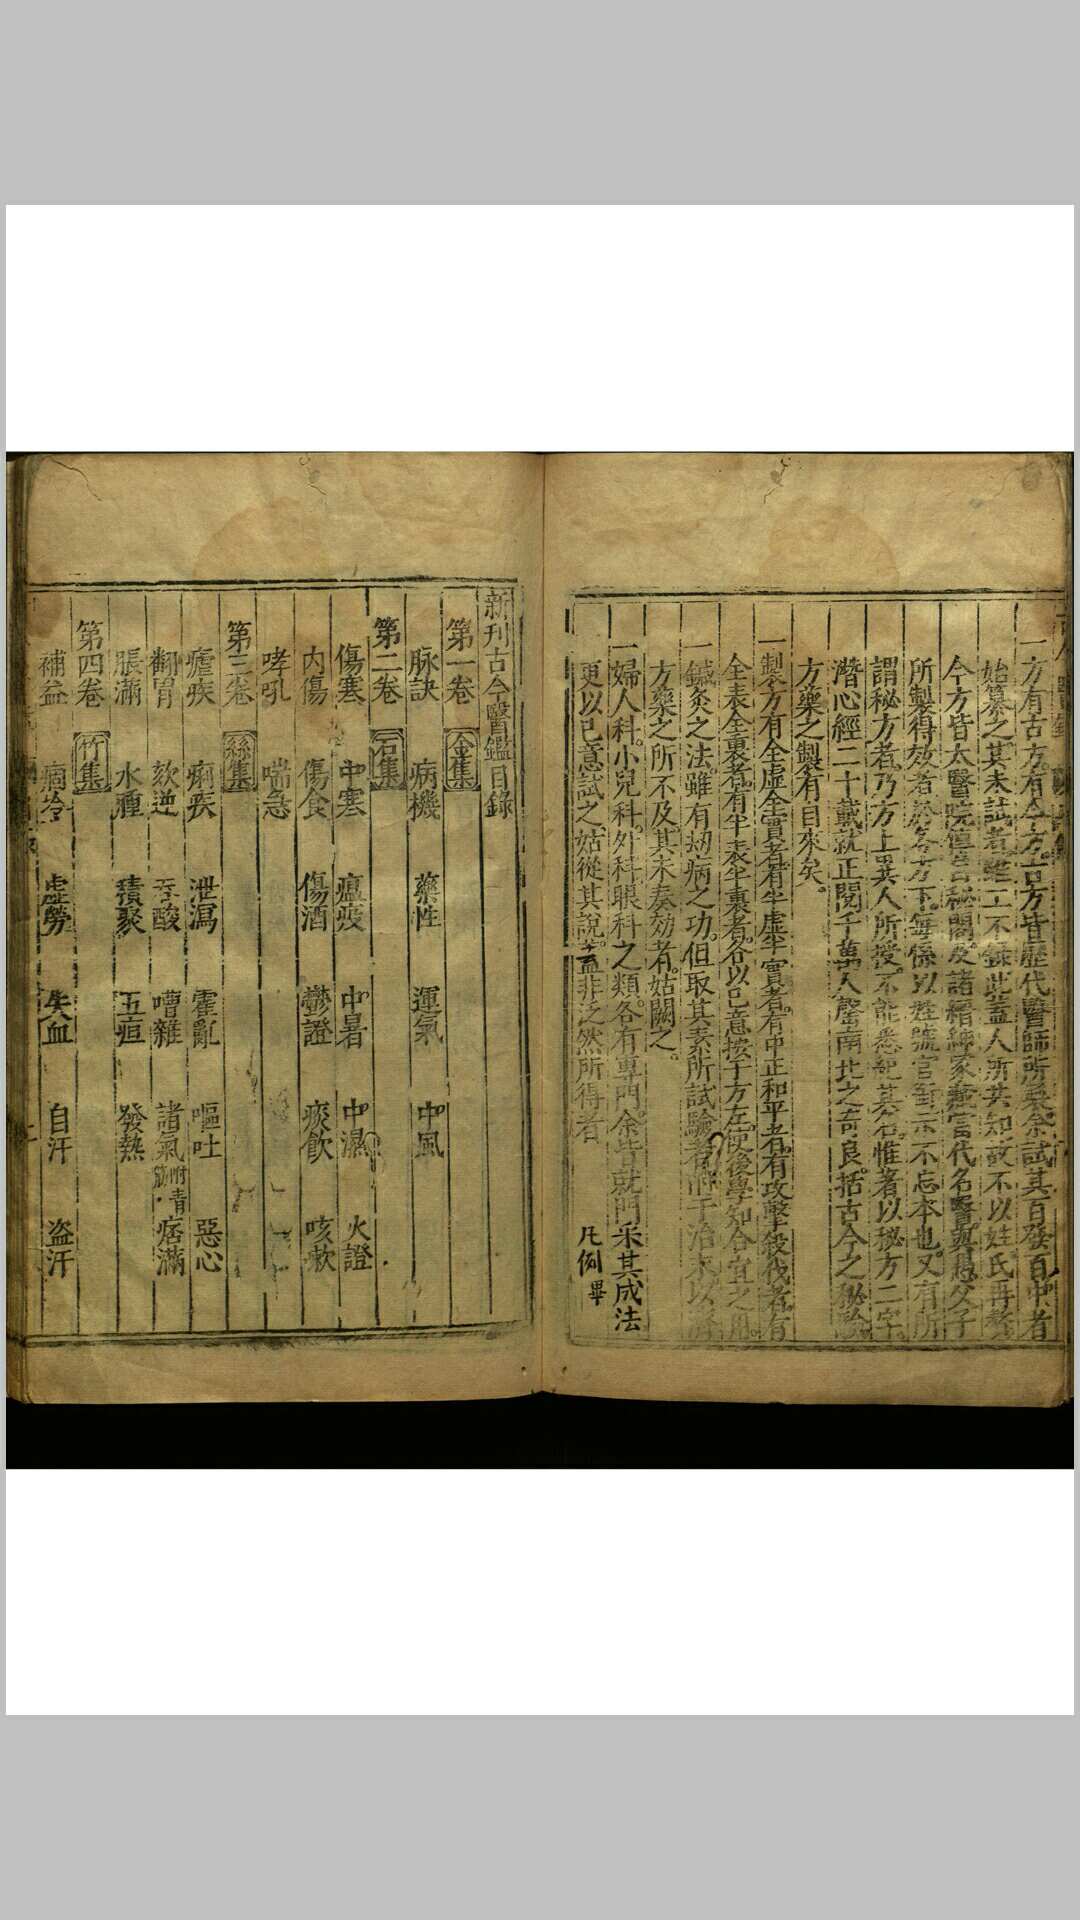 一方有古方有今方古方皆歷代醫師所彔余試其百發百中者
始纂之其未試者雖工不錄此蓋人所共知故不以姓氏再贅
今方皆太醫院 禁祕閣及諸縉紳家藏當代名醫與愚父子
所製得效者於各方下每係以姓號官 示不忘本也又有所
謂秘方者乃方上異人所授不能悉紀其名惟著以秘方二字
潛心經二十載就正閱千萬人罄南北之奇良括古今之秘驗
方藥之製有自來矣
一製方有全虛全實者有半虛半實者有中正和平者有攻擊殺伐者有
全表全裏者有半表半裏者各以己意按于方左使後學知合宜之用
一鍼灸之法雖有劫病之功但取其素所試驗者附于治末以濟
方藥之所不及其未奏効者姑闕之
一婦人科小兒科外科眼科之類各有專門余皆就門采其成法
更以己意試之姑從其說蓋非泛然所得者 凡例畢
新刊古今醫鑑目錄
第一卷 金集
脉訣 病機 藥性 運氣 中風
第二卷 石集
傷寒 中寒 瘟疫 中暑 中濕 火證
內傷 傷食 傷酒 鬱證 痰飲 咳嗽
哮吼 喘急
第三卷 絲集
瘧疾 痢疾 泄瀉 霍亂 嘔吐 惡心
翻胃 欬逆 吞酸 嘈雜 諸氣附青筋 痞滿
脹滿 水腫 積聚 五疸 發熱
第四卷 竹集
補益 痼冷 虛勞 失血 自汗 盜汗